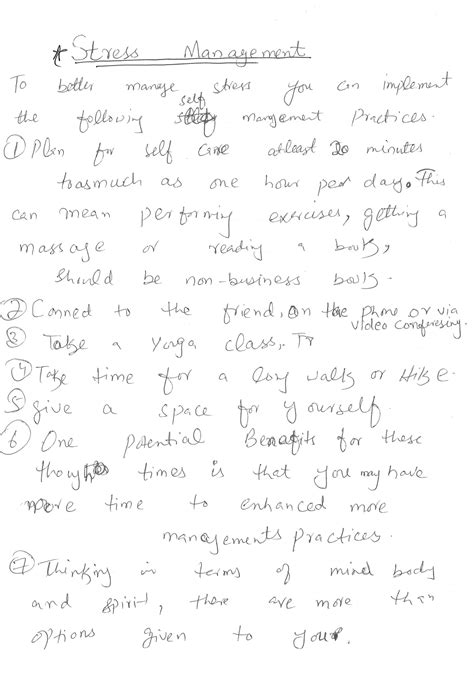 * Stress Management
To better manage stress you can implement
the following self mangement Practices.
① Plan for self care atleast 20 minutes
toasmuch as one hour per day. This
can mean performing exercises, getting a
massage or reading a book,
should be non-business book.
② Conned to the friend, on the phone or via
video conferesing.
③ Take a Yoga class,
④ Take time for a long walk or Hike.
⑤ give a space for yourself.
⑥ One potential Benafits for these
though times is that you may have
more time to enhanced more
managements practices.
⑦ Thinking in terms of mind body
and spirit, there are more than
options given to your.